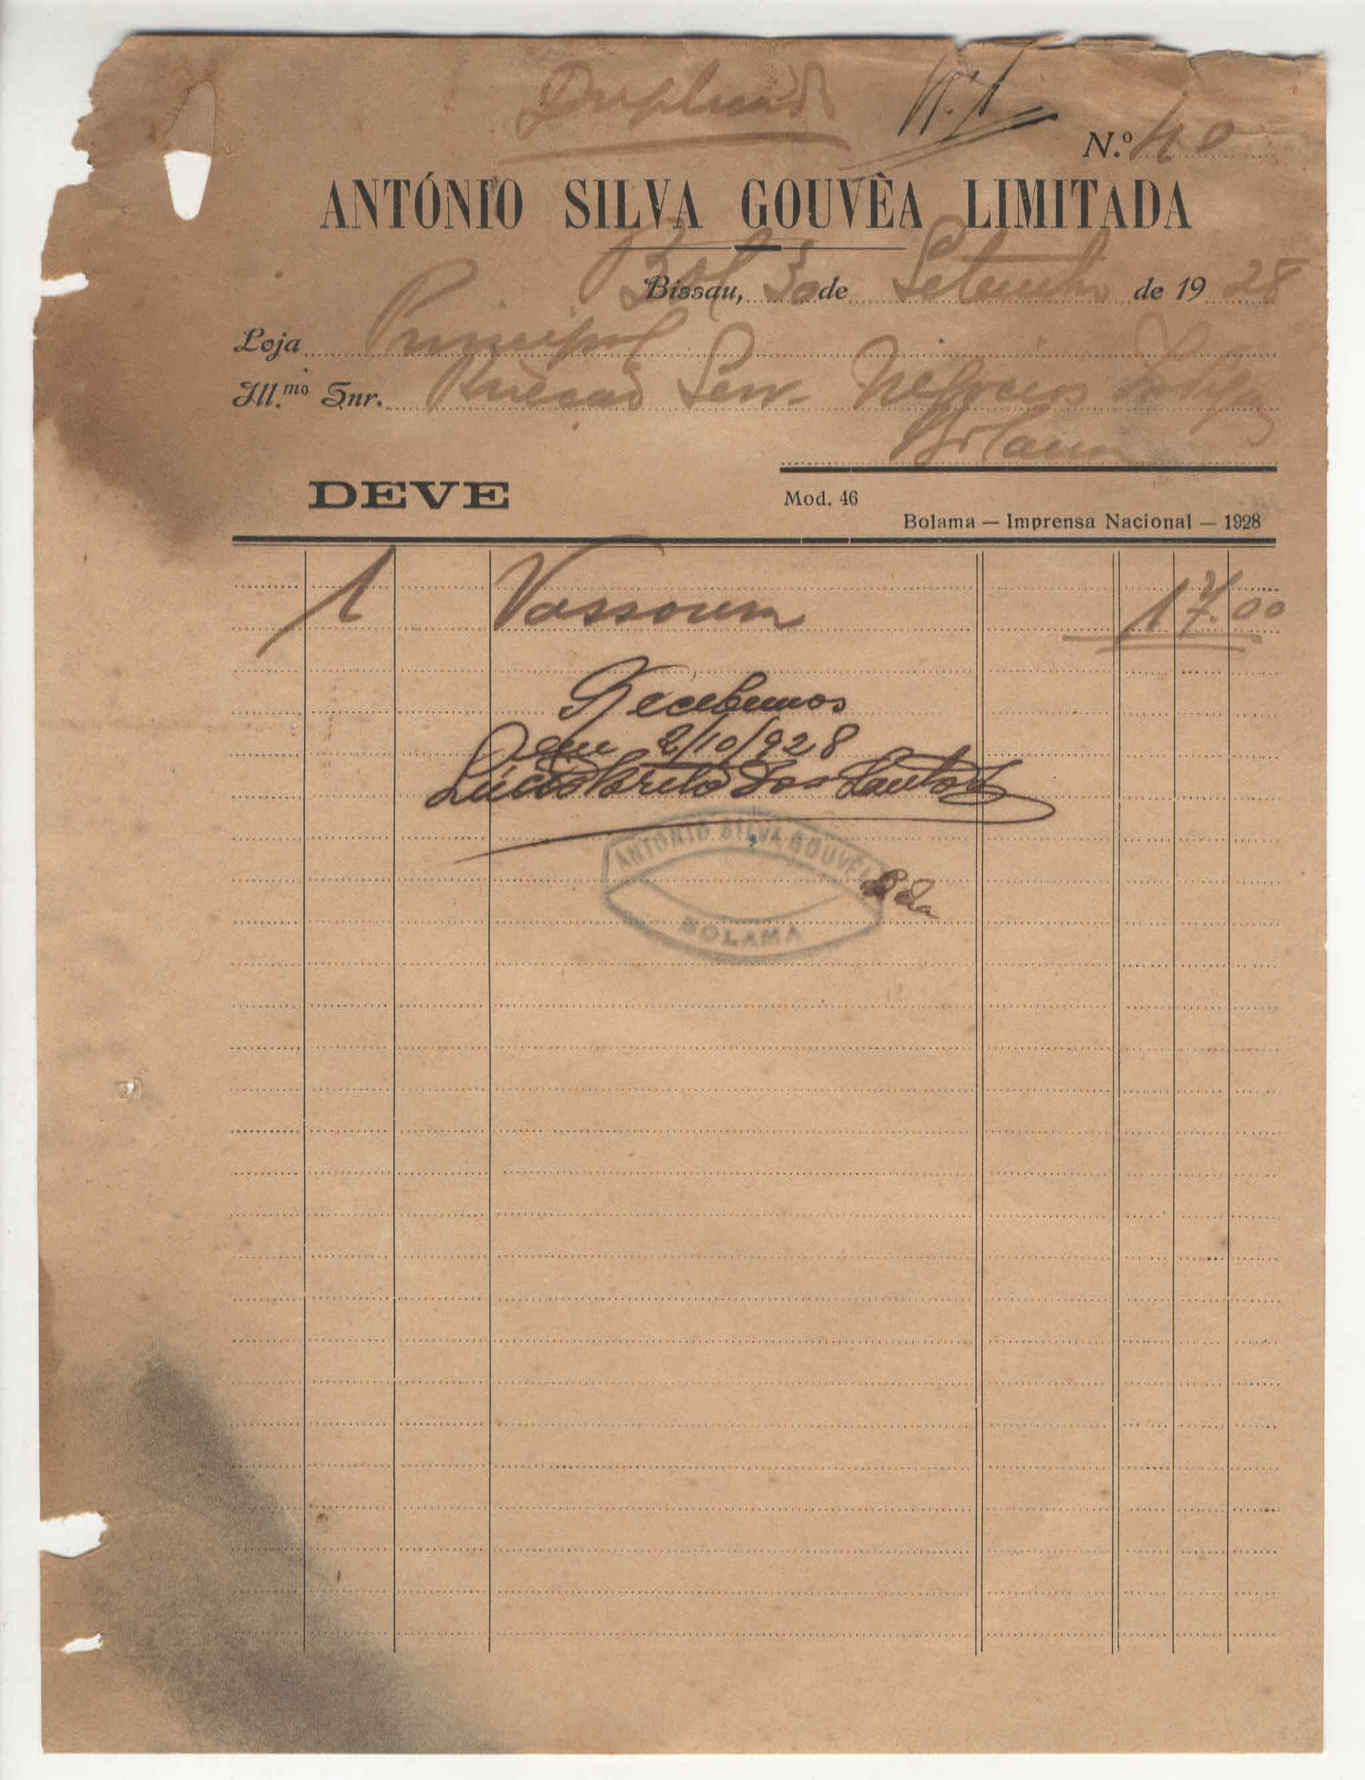 Duplicado
N.º 40
ANTÓNIO SILVA GOUVÈA LIMITADA
Bissau, Bol 30 de Setembro de 1928
Loja Principal
Ill.mo Snr. Direcção Serv. Negócios
Bolama
DEVE
Mod. 46
Bolama — Imprensa Nacional — 1928
1 Vassoura 17.00
Recebemos
em 2/10/928
dos Santos
ANTÓNIO SILVA GOUVÊA Lda
BOLAMA